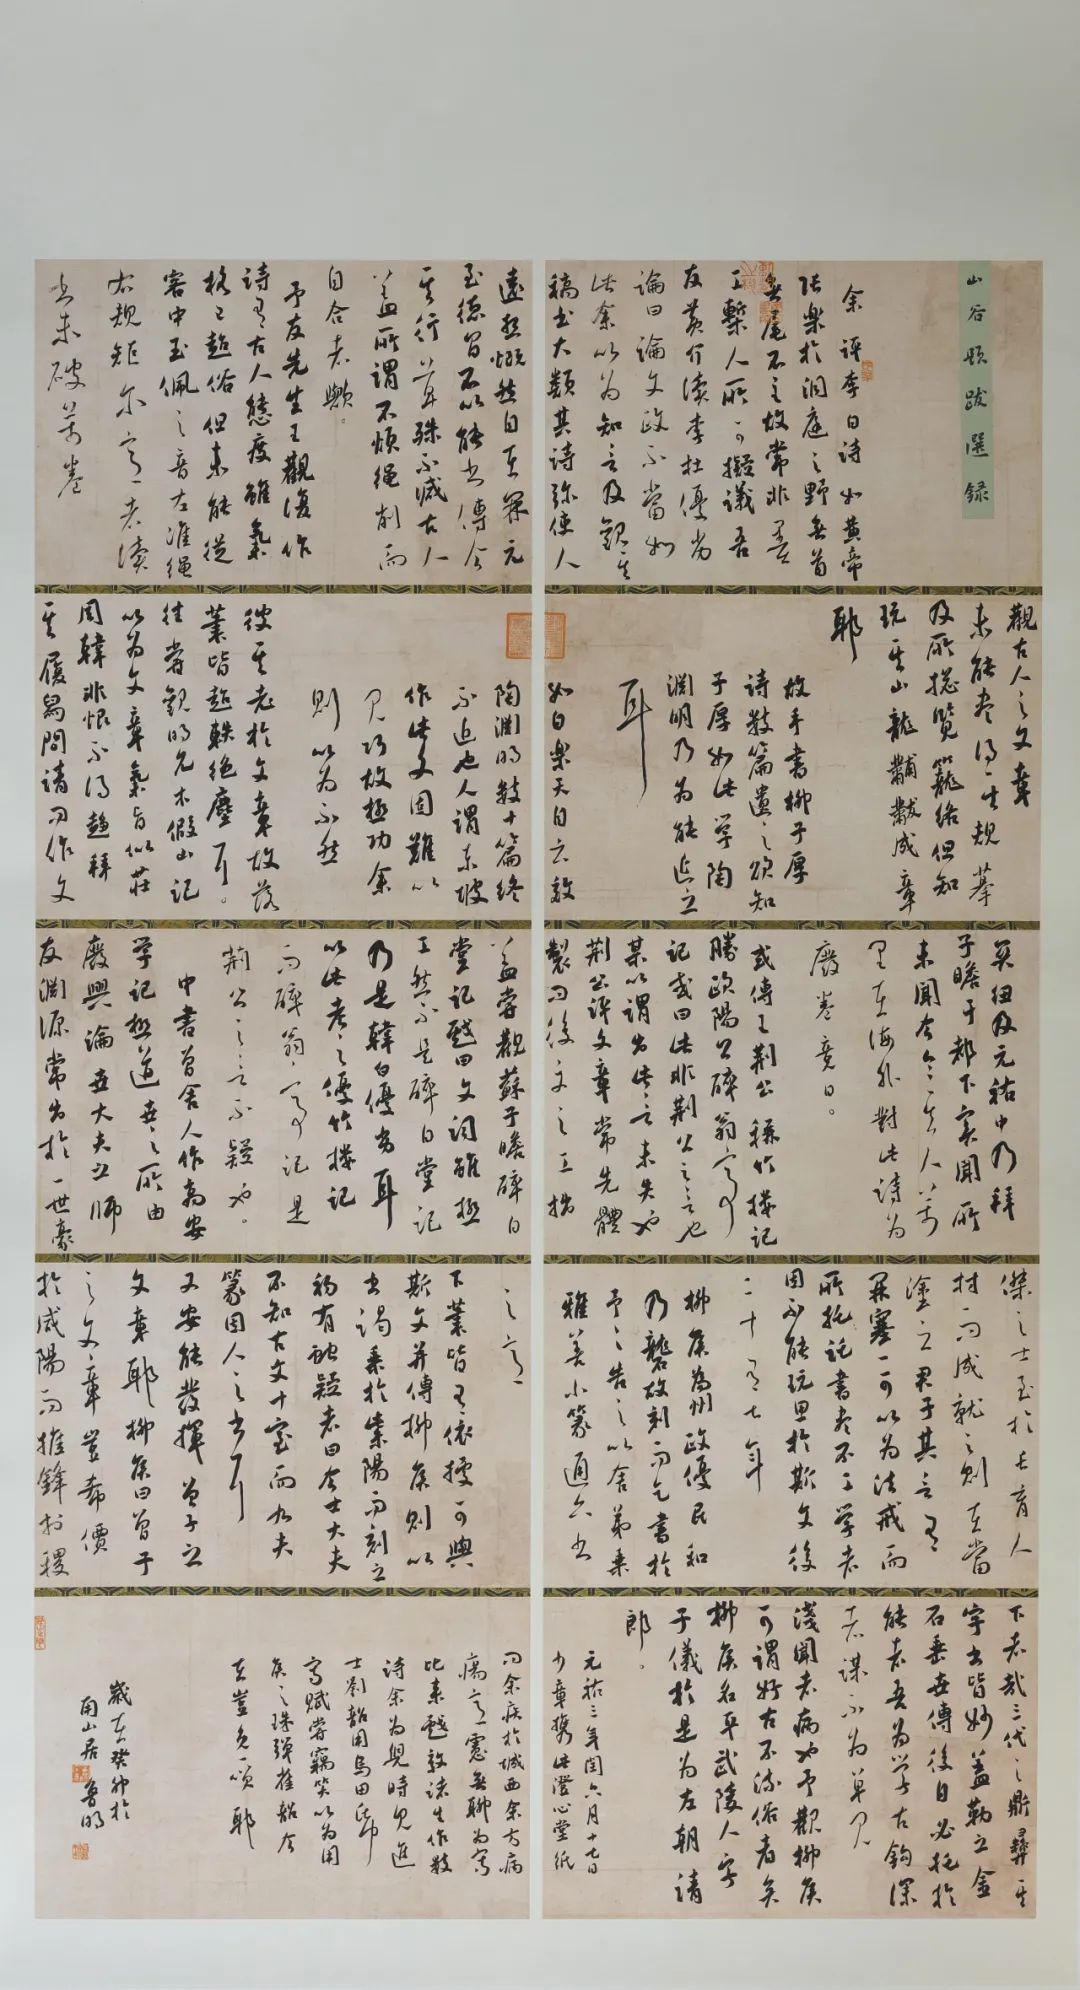 山谷題跋選錄
余評李白詩如黃帝
張樂於洞庭之野無首
無尾不主故常非墨
工槧人所可擬議吾
友黃介讀李杜優劣
論曰論文政不當如
此余以為知言及觀其
稿書大類其詩彌使人
遠想慨然白在開元
至德間不以能書傳今
其行草殊不減古人
蓋所謂不煩繩削而
自合者歟。
予友先生王觀復作
詩有古人態度雖氣
格已超俗但未能從
容中玉佩之音左准繩
右規矩尔意者讀
書未破萬卷
觀古人之文章
未能盡得其規摹
及所揔覽籠絡但知
玩其山龍黼黻成章
耶
故手書柳子厚
詩數篇遺之欲知
子厚如此學陶
淵明乃為能近之
耳
如白樂天自云效
陶淵明數十篇終
不近也人謂東坡
作此文因難以
見巧故極功余
則以為不然
彼其老於文章故落
筆皆超軼絕塵耳。
往嘗觀明允木假山記
以為文章氣旨似莊
周韓非恨不得趨拜
其履舄間請問作文
關紐及元祐中乃拜
子瞻于都下實聞所
未聞今令其人萬
里在海外對此詩為
廢卷竟日。
或傳王荊公稱竹樓記
勝歐陽公醉翁亭
記或曰此非荊公之言也
某以謂出此言未失也
荊公評文章常先體
製而後文之工拙
蓋嘗觀蘇子瞻醉白
堂記戲曰文詞雖極
工然不是醉白堂記
乃是韓白優劣耳
以此考之優竹樓記
而醉翁亭記是
荊公之言不疑也。
中書曾舍人作高安
学記極道世之所由
廢興論士大夫之師
友淵源常出於一世豪
傑之士至於長育人
材而成就之則在當
塗之君子其言有
開塞可以為法戒而
所託書者不工学者
因不能玩思於斯文後
二十有七年
柳侯為州政優民和
乃礱故刻而乞書於
予予告之以舍弟乘
雅善小篆通六書
之意
下筆皆有依據可與
斯文并傳柳侯則以
書謁乘於紫陽而刻之
初有訛疑者曰今士大夫
不知古文十室而九夫
篆固人之書耳
又安能發揮曾子之
文章耶柳侯曰曾子
之文章豈希價
於咸陽而摧鋒於稷
下者哉三代之鼎彝其
字書皆妙蓋勒之金
石垂世傳後自必托於
能者吾為学古鉤深
者謀不為單見
淺聞者病也予觀柳侯
可謂好古不流俗者矣
柳侯名平武陵人字
子儀於是為左朝請
郎。
元祐三年閏六月十七日
少章攜此澄心堂紙
問余疾於城西余方病
瘍意慮無聊為寫
比來戲效諸生作數
詩余為兒時見進
士劉韶用烏田紙
寫賦嘗竊笑以為用
侯之珠彈雀韶今
在豈免一噱耶
歲在癸卯於
南山居魯明